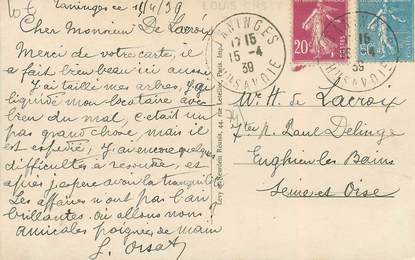 Taninges ce 15/4/39
Cher Monsieur De Lacroix
Merci de votre carte, il
a fait bien beau ici aussi
J'ai taillé mes arbres, j'ai
liquidé mon locataire avec
bien du mal, c'était un
pas grand chose, mais il
est expédié, J'ai encore quelques
difficultés à résoudre, et
après j'espère avoir la tranquilité
Les affaires n'ont pas l'air
brillantes. où allons nous?
Amicales poignées de main
J. Orsat
TANINGES
17 15
15-4
39
HTE SAVOIE
20c
Lévy et Neurdein Réunis, 44, rue Letellier, Paris, Imp.
Mr H. de Lacroix
7ter r. Paul Delinge
Enghien les Bains
Seine et Oise